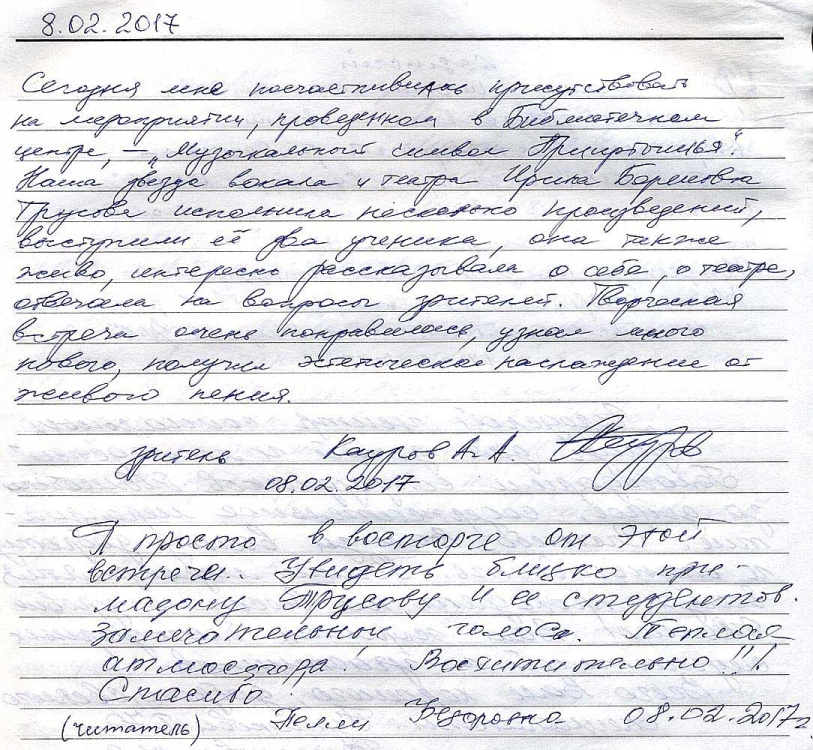 8.02.2017
Сегодня мне посчастливилось присутствовать
на мероприятии, проведенном в Библиотечном
центре, – „Музыкальный символ Прииртышья".
Наша звезда вокала и театра Ирина Борисовна
Трусова исполнила несколько произведений,
выступили её два ученика, она также
живо, интересно рассказывала о себе, о театре,
отвечала на вопросы зрителей. Творческая
встреча очень понравилась, узнал много
нового, получил эстетическое наслаждение от
живого пения.
зритель Кауров А.А.
08.02.2017
Я просто в восторге от этой
встречи.. Увидеть близко при-
мадонну Трусову и ее студентов.
Замечательные голоса. Теплая
атмосфера! Восхитительно!!!
Спасибо!
(читатель) Федоровна 08.02.2017г